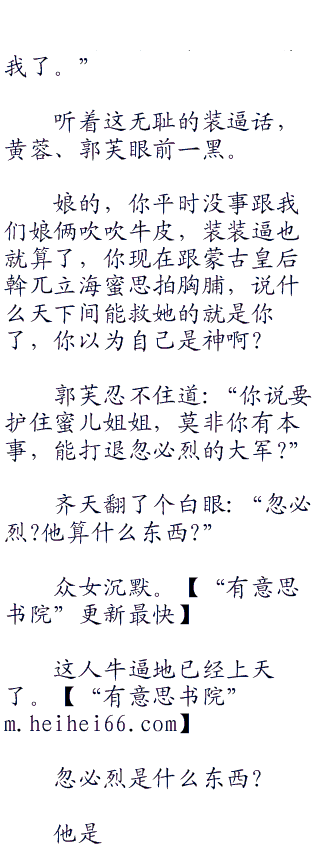 我了。”
听着这无耻的装逼话，
黄蓉、郭芙眼前一黑。
娘的，你平时没事跟我
们娘俩吹吹牛皮，装装逼也
就算了，你现在跟蒙古皇后
斡兀立海蜜思拍胸脯，说什
么天下间能救她的就是你
了，你以为自己是神啊？
郭芙忍不住道：“你说要
护住蜜儿姐姐，莫非你有本
事，能打退忽必烈的大军？”
齐天翻了个白眼：“忽必
烈？他算什么东西？”
众女沉默。【“有意思
书院”更新最快】
这人牛逼地已经上天
了。【“有意思书院”
m.heihei66.com】
忽必烈是什么东西？
他是